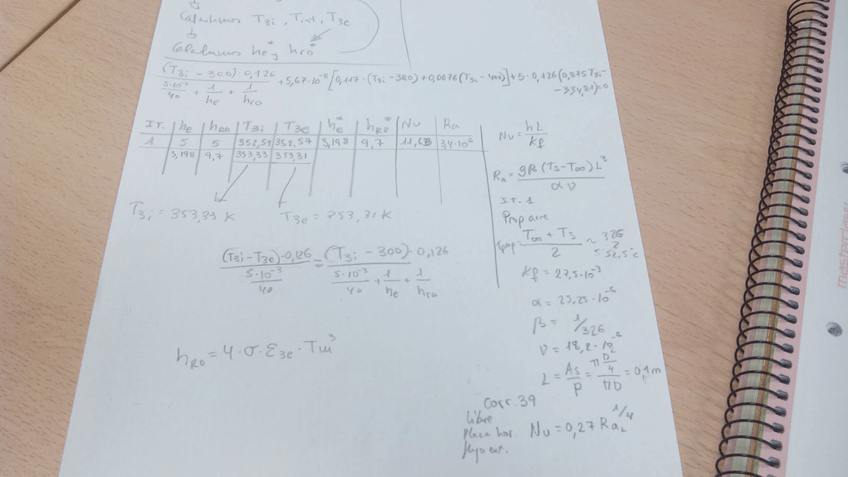 Calculamos T3i, Tint, T3e
Calculamos he*, hro*
(T3i - 300)·0,126 / (5·10^-3/40 + 1/he + 1/hro) + 5,67·10^-8 [0,117·(T3i - 300) + 0,0076(T3i - 400)] + 5·0,126(0,875T3i - 334,81)=0
IT. | he | hRO | T3i | T3e | he* | hRO* | Nu | Ra
1 | 5 | 5 | 352,59 | 352,57 | 3,198 | 9,7 | 11,63 | 34·10^6
3,198 | 9,7 | 353,33 | 353,31
T3i = 353,33 K T3e = 353,31 K
(T3i - T3e)·0,126 / (5·10^-3/40) = (T3i - 300)·0,126 / (5·10^-3/40 + 1/he + 1/hro)
hRO = 4·σ·ε3e·Tm^3
Nu = hL/kf
Ra = gβ(Ts - T∞)L^3 / αν
IT. 1
Prop aire
= (T∞ + Ts)/2 ≈ 326
52,5°C
kf = 27,5·10^-3
β = 1/326
L = As/P = (πD²/4)/(πD) = 0,1m
Corr. 39
libre
placa hor.
flujo
Nu = 0,27 RaL^1/4